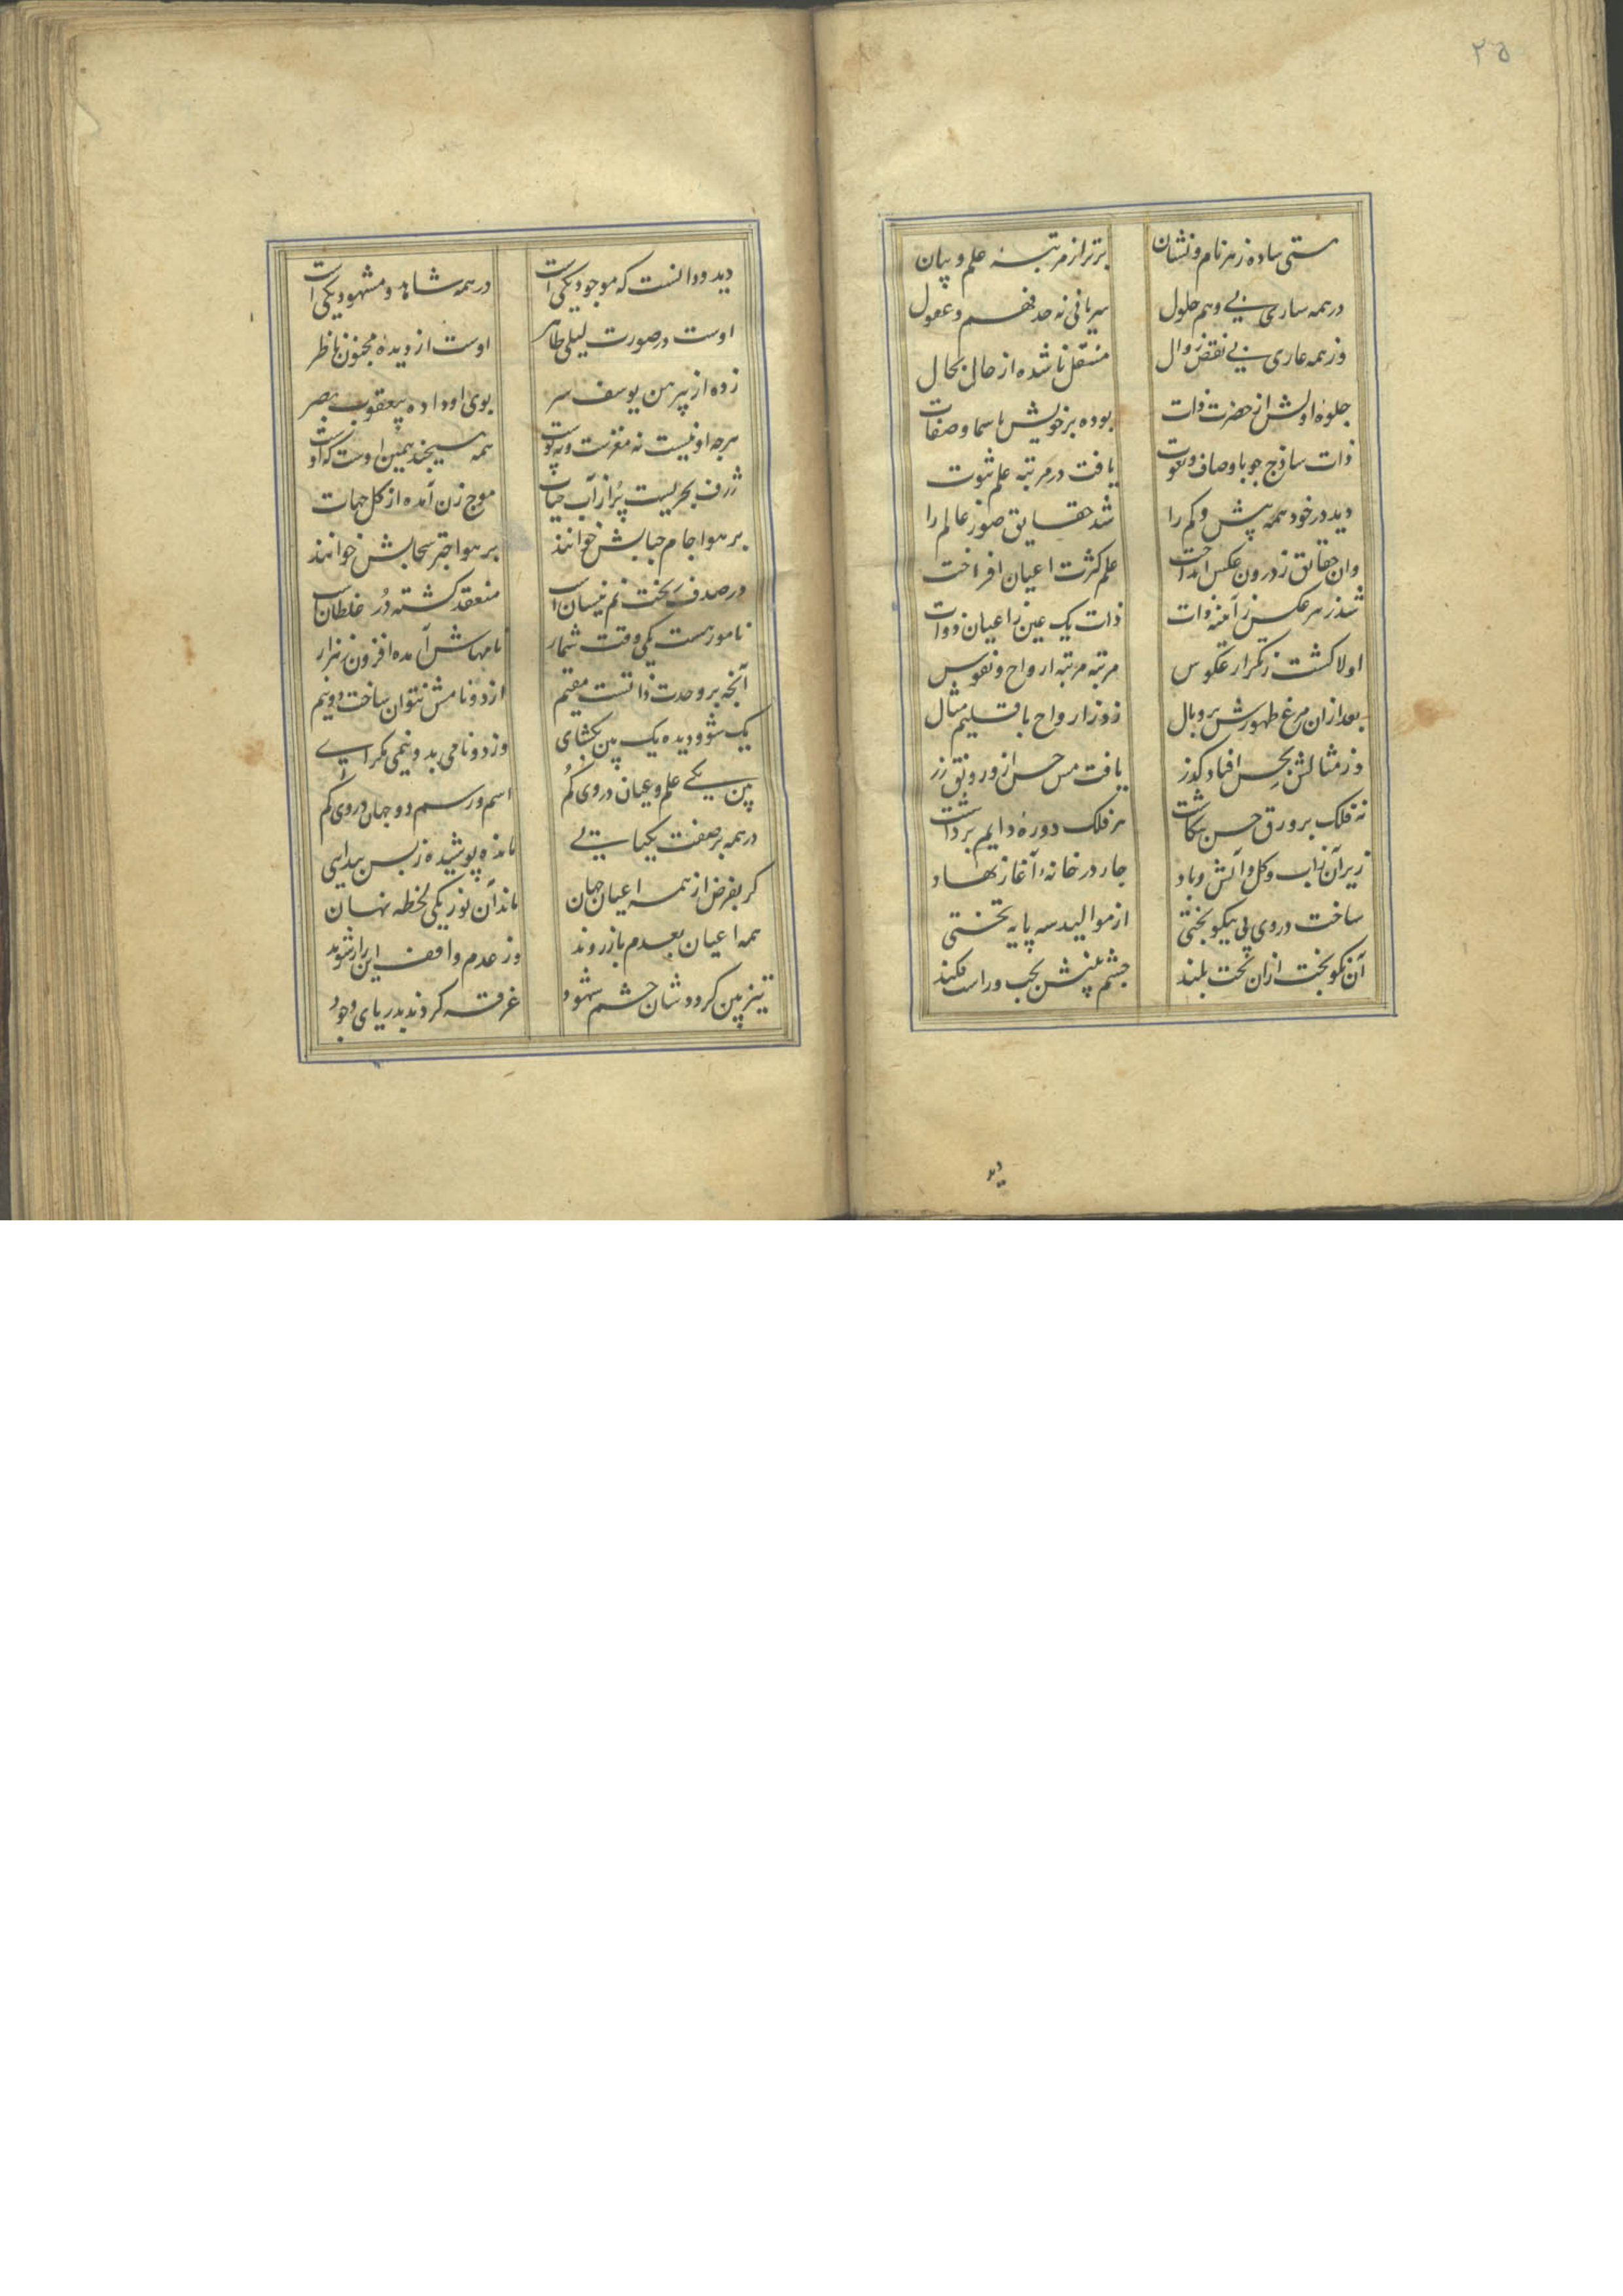 ٢٥
هستی ساده ز هر نام و نشان برتر از مرتبهٔ علم و بیان
در همه ساری بی وهم حلول سریانی نه حد فهم و عقول
وز همه عاری بی نقض زوال منتقل ناشده از حال بحال
جلوهٔ اولش از حضرت ذات بوده بر خویش باسما و صفات
ذات ساذج جو باوصاف و نعوت یافت در مرتبه علم ثبوت
دید در خود همه پیش و کم را شد حقایق صور عالم را
وان حقائق ز درون عکس انداخت علم کثرت اعیان افراخت
شد ز هر عکس ز آینه ذات ذات یک عین ز اعیان ذوات
اولا کشت ز تکرار عکوس مرتبه مرتبه ارواح و نفوس
بعد ازان مرغ ظهورش پر و بال زد ز ارواح باقلیم مثال
وز مثالش بحس افتاد کذر یافت مس حس ازو رونق زر
نه فلک بر ورق حس بنکاشت هر فلک دورهٔ دایم برداشت
زیر آن ز آب و کل و آتش و باد جار در خانهٔ آغاز نهاد
ساخت در وی پی نیکو بختی از موالید سه پایه تختی
آن نکوبخت ازان تخت بلند جشم بینش بجب و راست فکند
دید
دید و دانست که موجود یکی است در همه شاهد و مشهود یکی است
اوست در صورت لیلی ظاهر اوست از دیده مجنون ناظر
زده از پیرهن یوسف سر بوی او داده بیعقوب بصر
هرجه او نیست نه مغزست و نه پوست همه هیچند همین اوست که اوست
ژرف بحریست پر از آب حیات موج زن آمده از کل جهات
بر هوا جام حبابش خوانند بر هوا جتر سحابش خوانند
در صدف ریخت نم نیسان است منعقد کشته در غلطان است
نامور هست یکی وقت شمار نامهاش آمده افزون ز هزار
آنجه بر وحدت ذاتست مقیم از دو نامش نتوان ساخت دو نیم
یک شو و دیده یک بین بکشای وز دو نامی بدو نیمی مکرای
بین یکی علم و عیان در وی کم اسم و رسم دو جهان در وی کم
در همه بر صفت یکتایی مانده پوشیده ز بس پیدایی
کر بفرض از همه اعیان جهان ماند آن نور یکی لحظه نهان
همه اعیان بعدم باز روند وز عدم واقف این راز شوند
تیز بین کرددشان جشم شهود غرقه کردند بدریای وجود